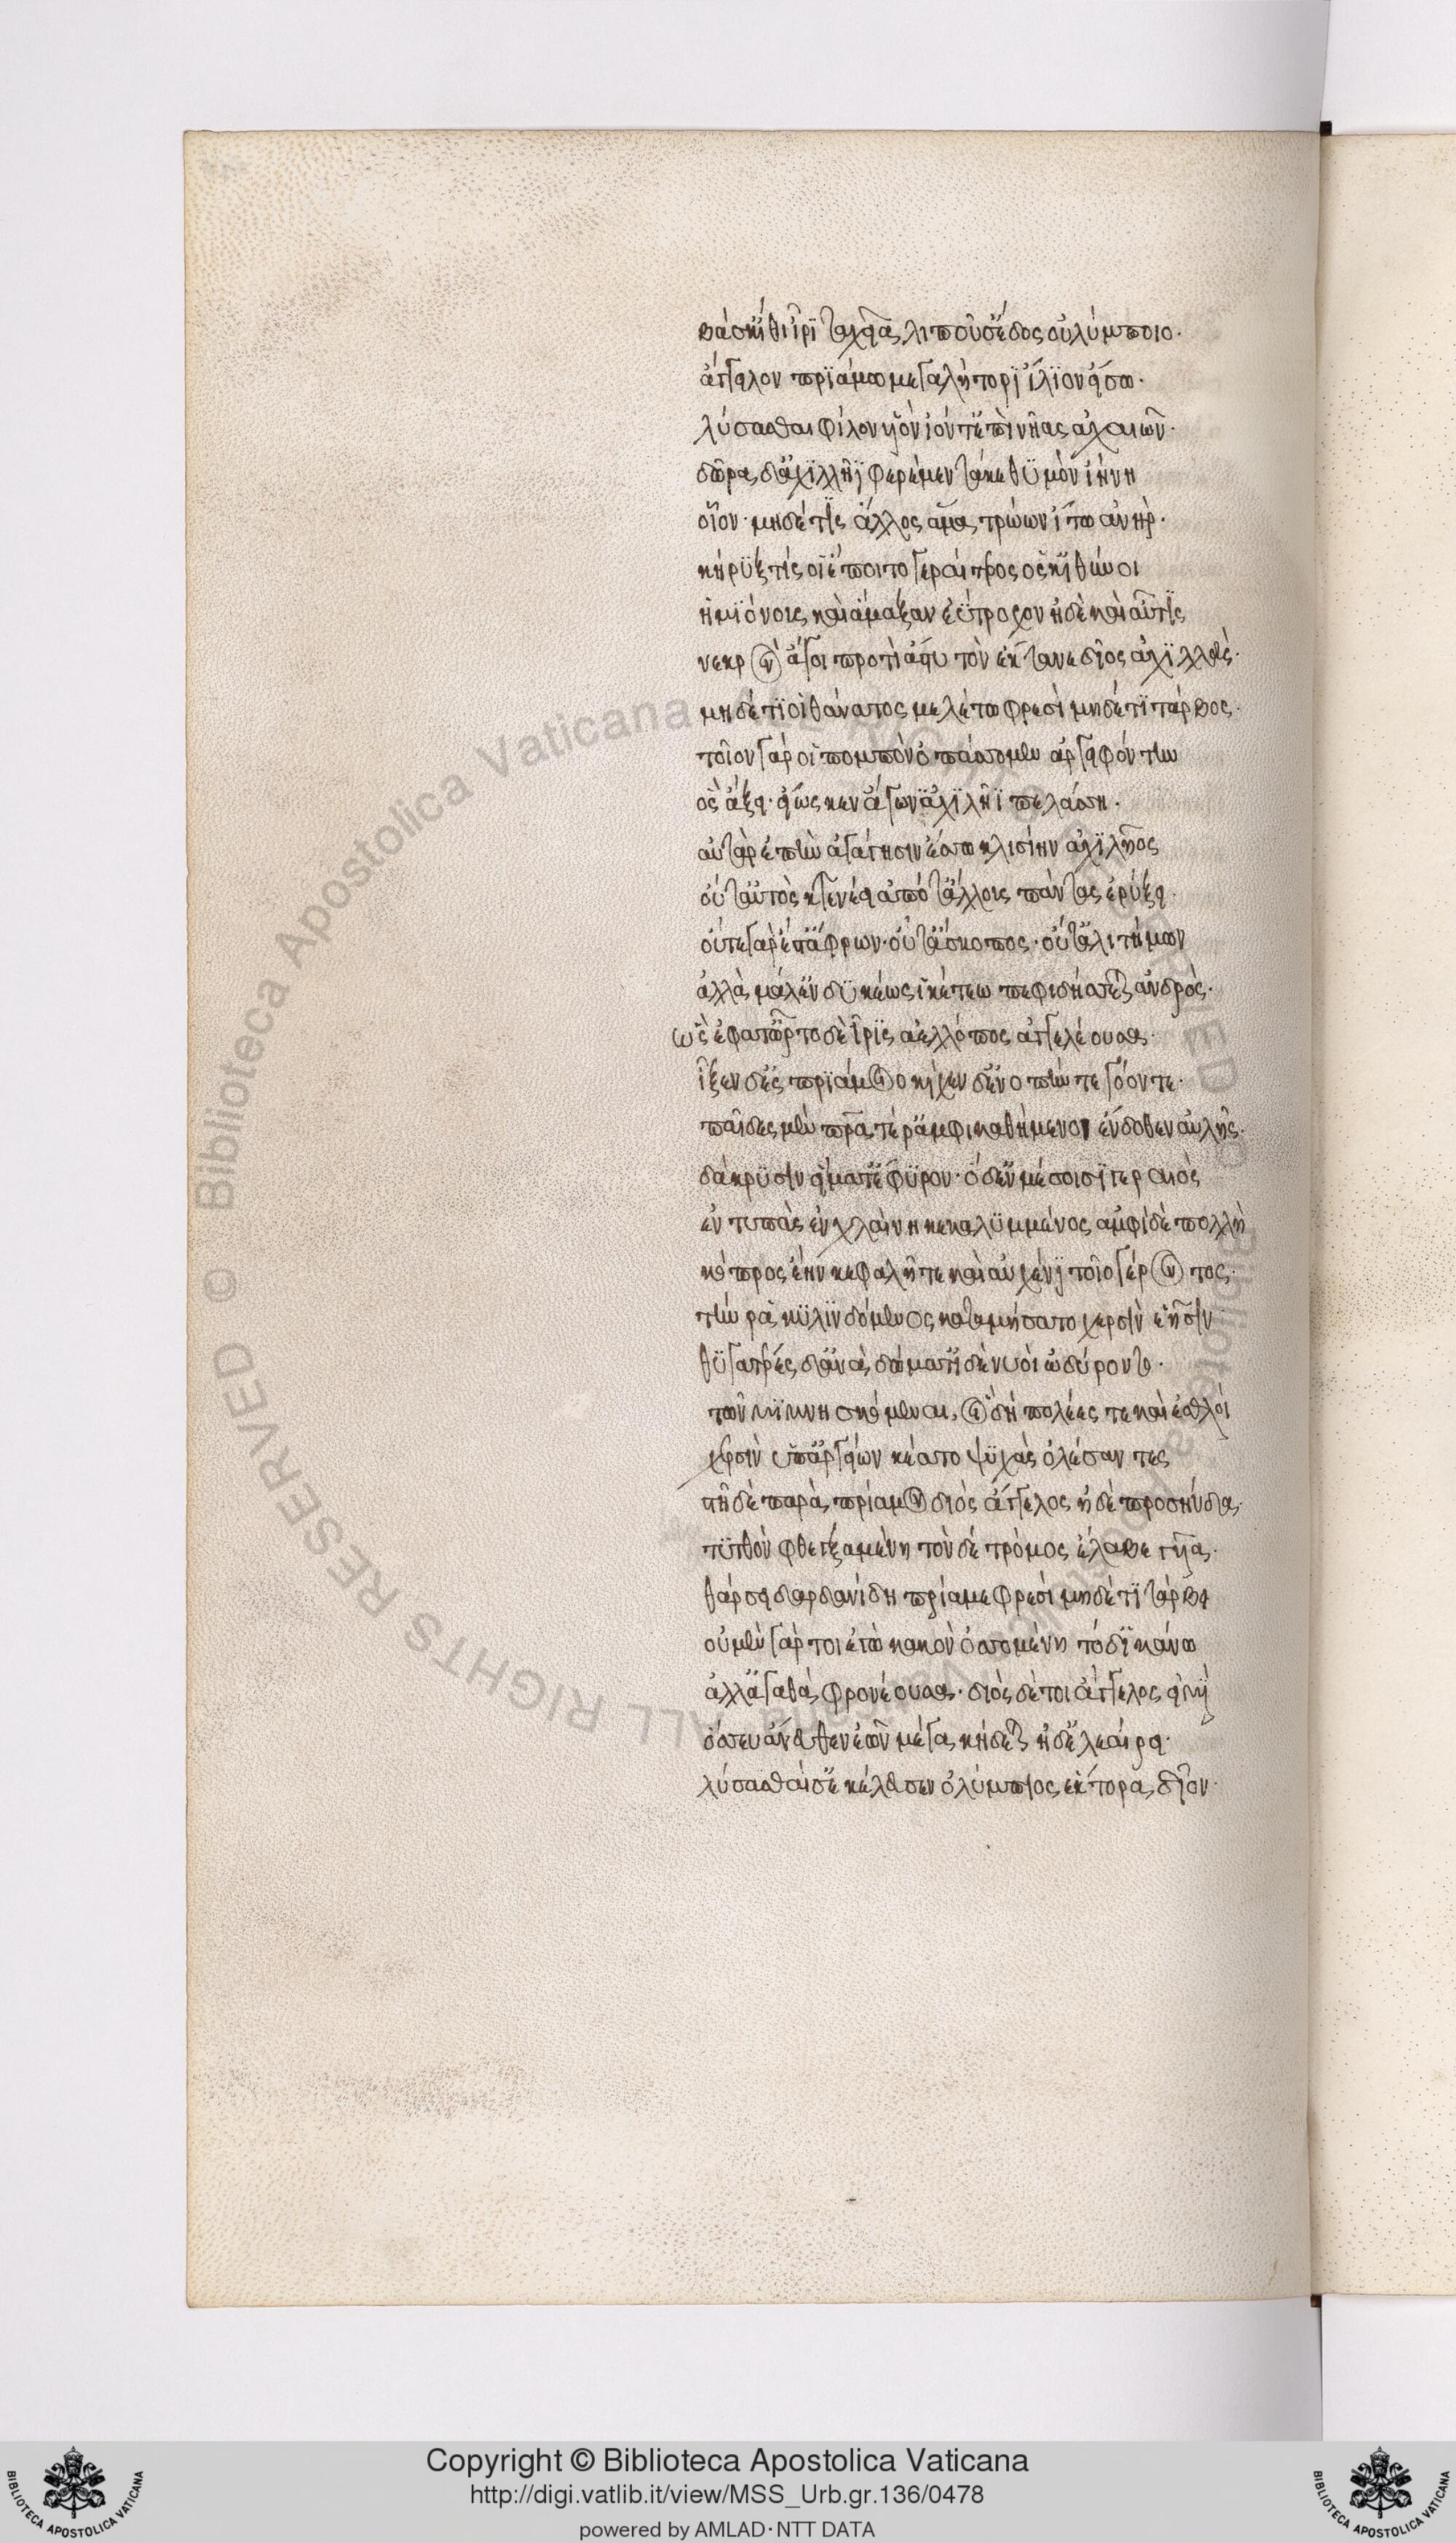 βάσκ' ἴθι ἶρι ταχεῖα, λιποῦσ' ἕδος οὐλύμποιο·
ἄγγειλον πριάμω μεγαλήτορι ἴλιον εἴσω·
λύσασθαι φίλον υἱὸν ἰόντ' ἐπὶ νῆας ἀχαιῶν·
δῶρα δ' ἀχιλλῆϊ φερέμεν τάκε θυμὸν ἰήνη
οἶον· μηδέ τις ἄλλος ἅμα τρώων ἴτω ἀνήρ·
κήρυξ τίς οἱ ἕποιτο γεραίτερος ὅς κ' ἰθύνοι
ἡμιόνους καὶ ἅμαξαν ἐΰτροχον ἠδὲ καὶ αὖτις
νεκρὸν ἄγοι προτὶ ἄστυ τὸν ἔκτανε δῖος ἀχιλλεὺς·
μηδέ τί οἱ θάνατος μελέτω φρεσὶ μηδέ τι τάρβος·
τοῖον γάρ οἱ πομπὸν ὀπάσομεν ἀργειφόντην
ὃς ἄξει· εἵως κεν ἄγων ἀχιλῆϊ πελάσση·
αὐτὰρ ἐπὴν ἀγάγησιν ἔσω κλισίην ἀχιλῆος
οὔτ' αὐτὸς κτενέει ἀπό τ' ἄλλους πάντας ἐρύξει·
οὔτε γὰρ ἔστ' ἄφρων· οὔτ' ἄσκοπος· οὔτ' ἀλιτήμων
ἀλλὰ μάλ' ἐνδυκέως ἱκέτεω πεφιδήσεται ἀνδρὸς·
ὣς ἔφατ' ὦρτο δὲ ἶρις ἀελλόπος ἀγγελέουσα·
ἷξεν δ' ἐς πριάμοιο κίχεν δ' ἐνοπήν τε γόον τε·
παῖδες μὲν πατέρ' ἀμφικαθήμενοι ἔνδοθεν αὐλῆς·
δάκρυσιν εἵματ' ἔφυρον· ὁ δ' ἐν μέσοισι γεραιὸς
ἐντυπὰς ἐν χλαίνη κεκαλυμμένος ἀμφὶ δὲ πολλὴ
κόπρος ἔην κεφαλῆ τε καὶ αὐχένι τοῖο γέροντος·
τήν ῥα κυλινδόμενος καταμήσατο χερσὶν ἑῆσιν·
θυγατέρες δ' ἀνὰ δώματ' ἰδὲ νυοὶ ὠδύροντο·
τῶν μιμνησκόμεναι, οἳ δὴ πολέες τε καὶ ἐσθλοὶ
χερσὶν ὑπ' ἀργείων κέατο ψυχὰς ὀλέσαντες
στῆ δὲ παρὰ πρίαμον διὸς ἄγγελος ἠδὲ προσηύδα·
τυτθὸν φθεγξαμένη τὸν δὲ τρόμος ἔλαβε γυῖα·
θάρσει δαρδανίδη πρίαμε φρεσὶ μηδέ τι τάρβει
οὐ μὲν γάρ τοι ἐγὼ κακὸν ὀσσομένη τόδ' ἱκάνω
ἀλλ' ἀγαθὰ φρονέουσα· διὸς δέ τοι ἄγγελος εἰμὶ
ὅς σευ ἄνευθεν ἐὼν μέγα κήδεται ἠδ' ἐλεαίρει·
λύσασθαί σ' ἐκέλευσεν ὀλύμπιος ἕκτορα δῖον·
Copyright © Biblioteca Apostolica Vaticana
http://digi.vatlib.it/view/MSS_Urb.gr.136/0478
powered by AMLAD·NTT DATA